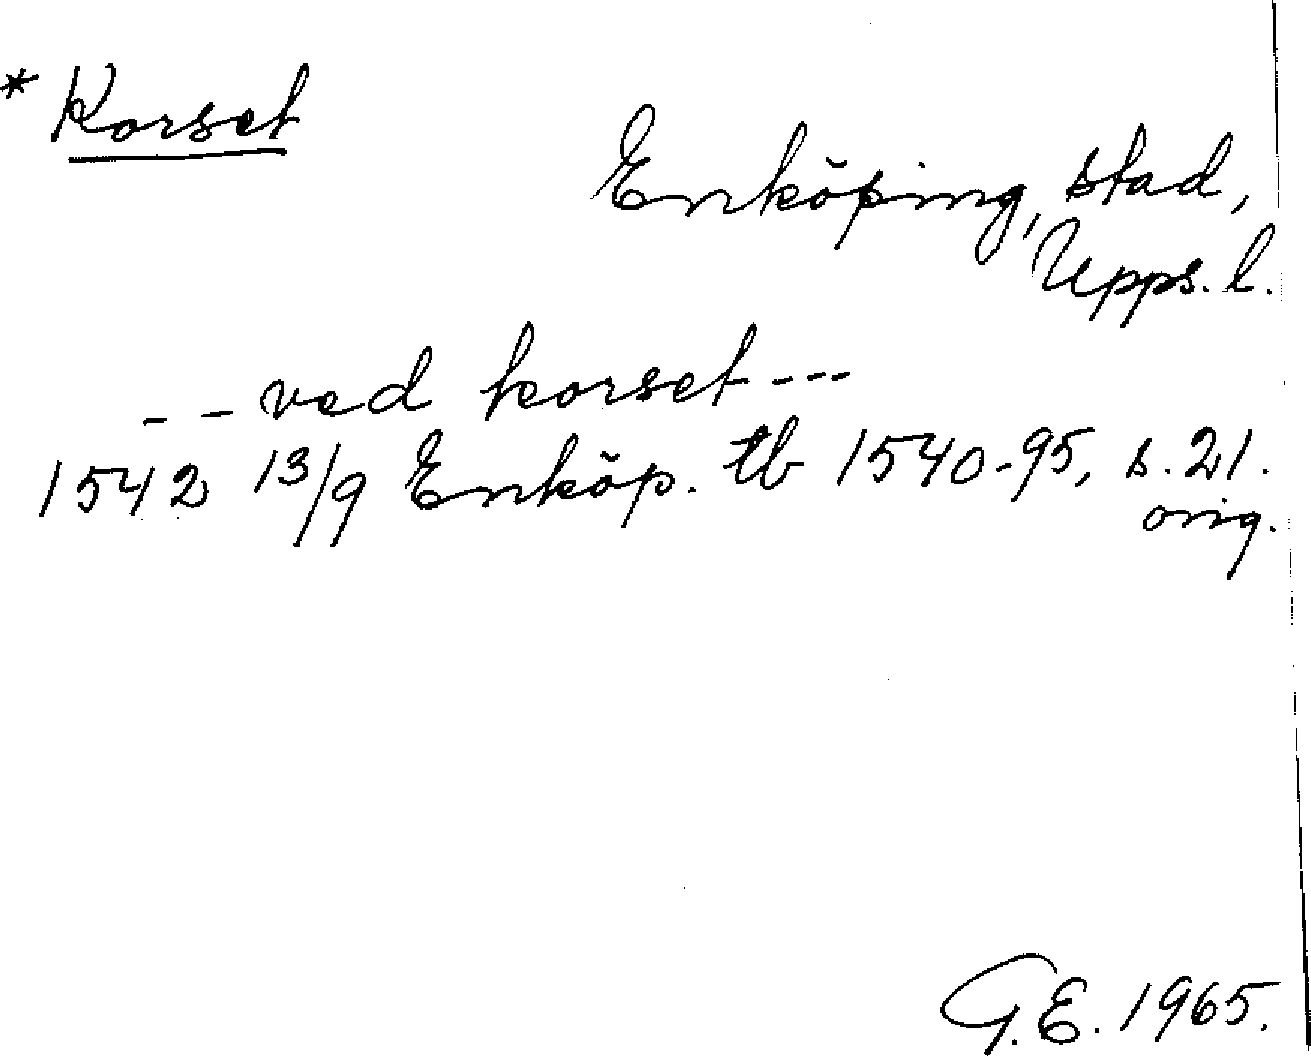 * Korset
Enköping, stad,
Upps. l.
- - ved korset - - -
1542 13/9 Enköp. tb 1540-95, s. 21.
orig.
G.E. 1965.